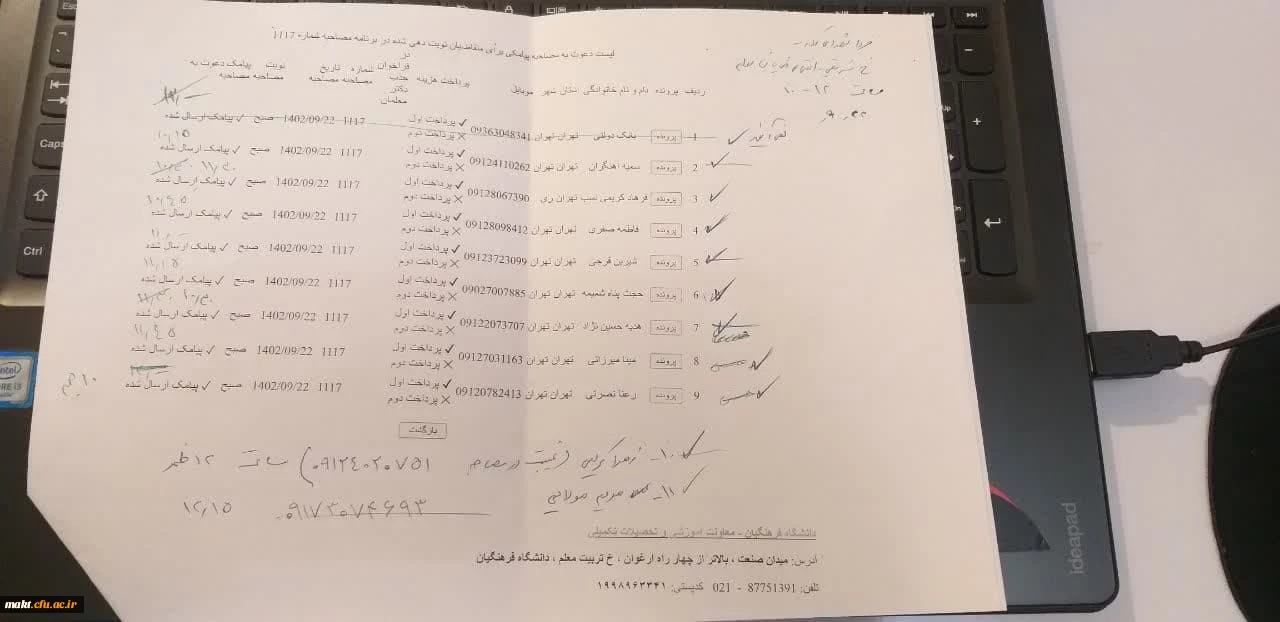 لیست دعوت به مصاحبه پیامکی برای متقاضیان نوبت دهی شده در برنامه مصاحبه شماره 1117
ردیف پرونده نام و نام خانوادگی استان شهر موبایل پرداخت هزینه در فراخوان جذب دکتر معلمان شماره مصاحبه تاریخ مصاحبه نوبت مصاحبه پیامک دعوت به مصاحبه
ساعت ۱۲-۱۰
1 پرونده بابک دولتی تهران تهران 09363048341 ✓ پرداخت اول × پرداخت دوم 1117 1402/09/22 صبح ✓ پیامک ارسال شده
۱۰,۱۵
2 پرونده سمیه آهنگران تهران تهران 09124110262 ✓ پرداخت اول × پرداخت دوم 1117 1402/09/22 صبح ✓ پیامک ارسال شده
۱۰,۳۰ ۱۱,۳۰
3 پرونده فرهاد کریمی نسب تهران ری 09128067390 ✓ پرداخت اول × پرداخت دوم 1117 1402/09/22 صبح ✓ پیامک ارسال شده
۱۰,۴۵
4 پرونده فاطمه صفری تهران تهران 09128098412 ✓ پرداخت اول × پرداخت دوم 1117 1402/09/22 صبح ✓ پیامک ارسال شده
۱۱,-
5 پرونده شیرین فرجی تهران تهران 09123723099 ✓ پرداخت اول × پرداخت دوم 1117 1402/09/22 صبح ✓ پیامک ارسال شده
۱۱,۱۵
6 پرونده حجت پناه شمیمه تهران تهران 09027007885 ✓ پرداخت اول × پرداخت دوم 1117 1402/09/22 صبح ✓ پیامک ارسال شده
۱۰,۳۰
7 پرونده هدیه حسین نژاد تهران تهران 09122073707 ✓ پرداخت اول × پرداخت دوم 1117 1402/09/22 صبح ✓ پیامک ارسال شده
۱۱,۴۵
8 پرونده مینا میرزائی تهران تهران 09127031163 ✓ پرداخت اول × پرداخت دوم 1117 1402/09/22 صبح ✓ پیامک ارسال شده
9 پرونده رعنا نصرتی تهران تهران 09120782413 ✓ پرداخت اول × پرداخت دوم 1117 1402/09/22 صبح ✓ پیامک ارسال شده
بازگشت
۱۰- زهرا کریمی (غیبت در مصاحبه ۰۹۱۲۴۰۲۰۷۵۱) ساعت ۱۲ ظهر
۱۱- مریم مولایی
۰۹۱۷۳۰۷۴۶۹۳ ۱۲,۱۵
دانشگاه فرهنگیان - معاونت آموزشی و تحصیلات تکمیلی
آدرس: میدان صنعت ، بالاتر از چهار راه ارغوان ، خ تربیت معلم ، دانشگاه فرهنگیان
تلفن: 87751391 - 021 کدپستی: ۱۹۹۸۹۶۳۳۴۱
Esc
Caps
Ctrl
intel
CORE i3
ideapad
makt.cfu.ac.ir